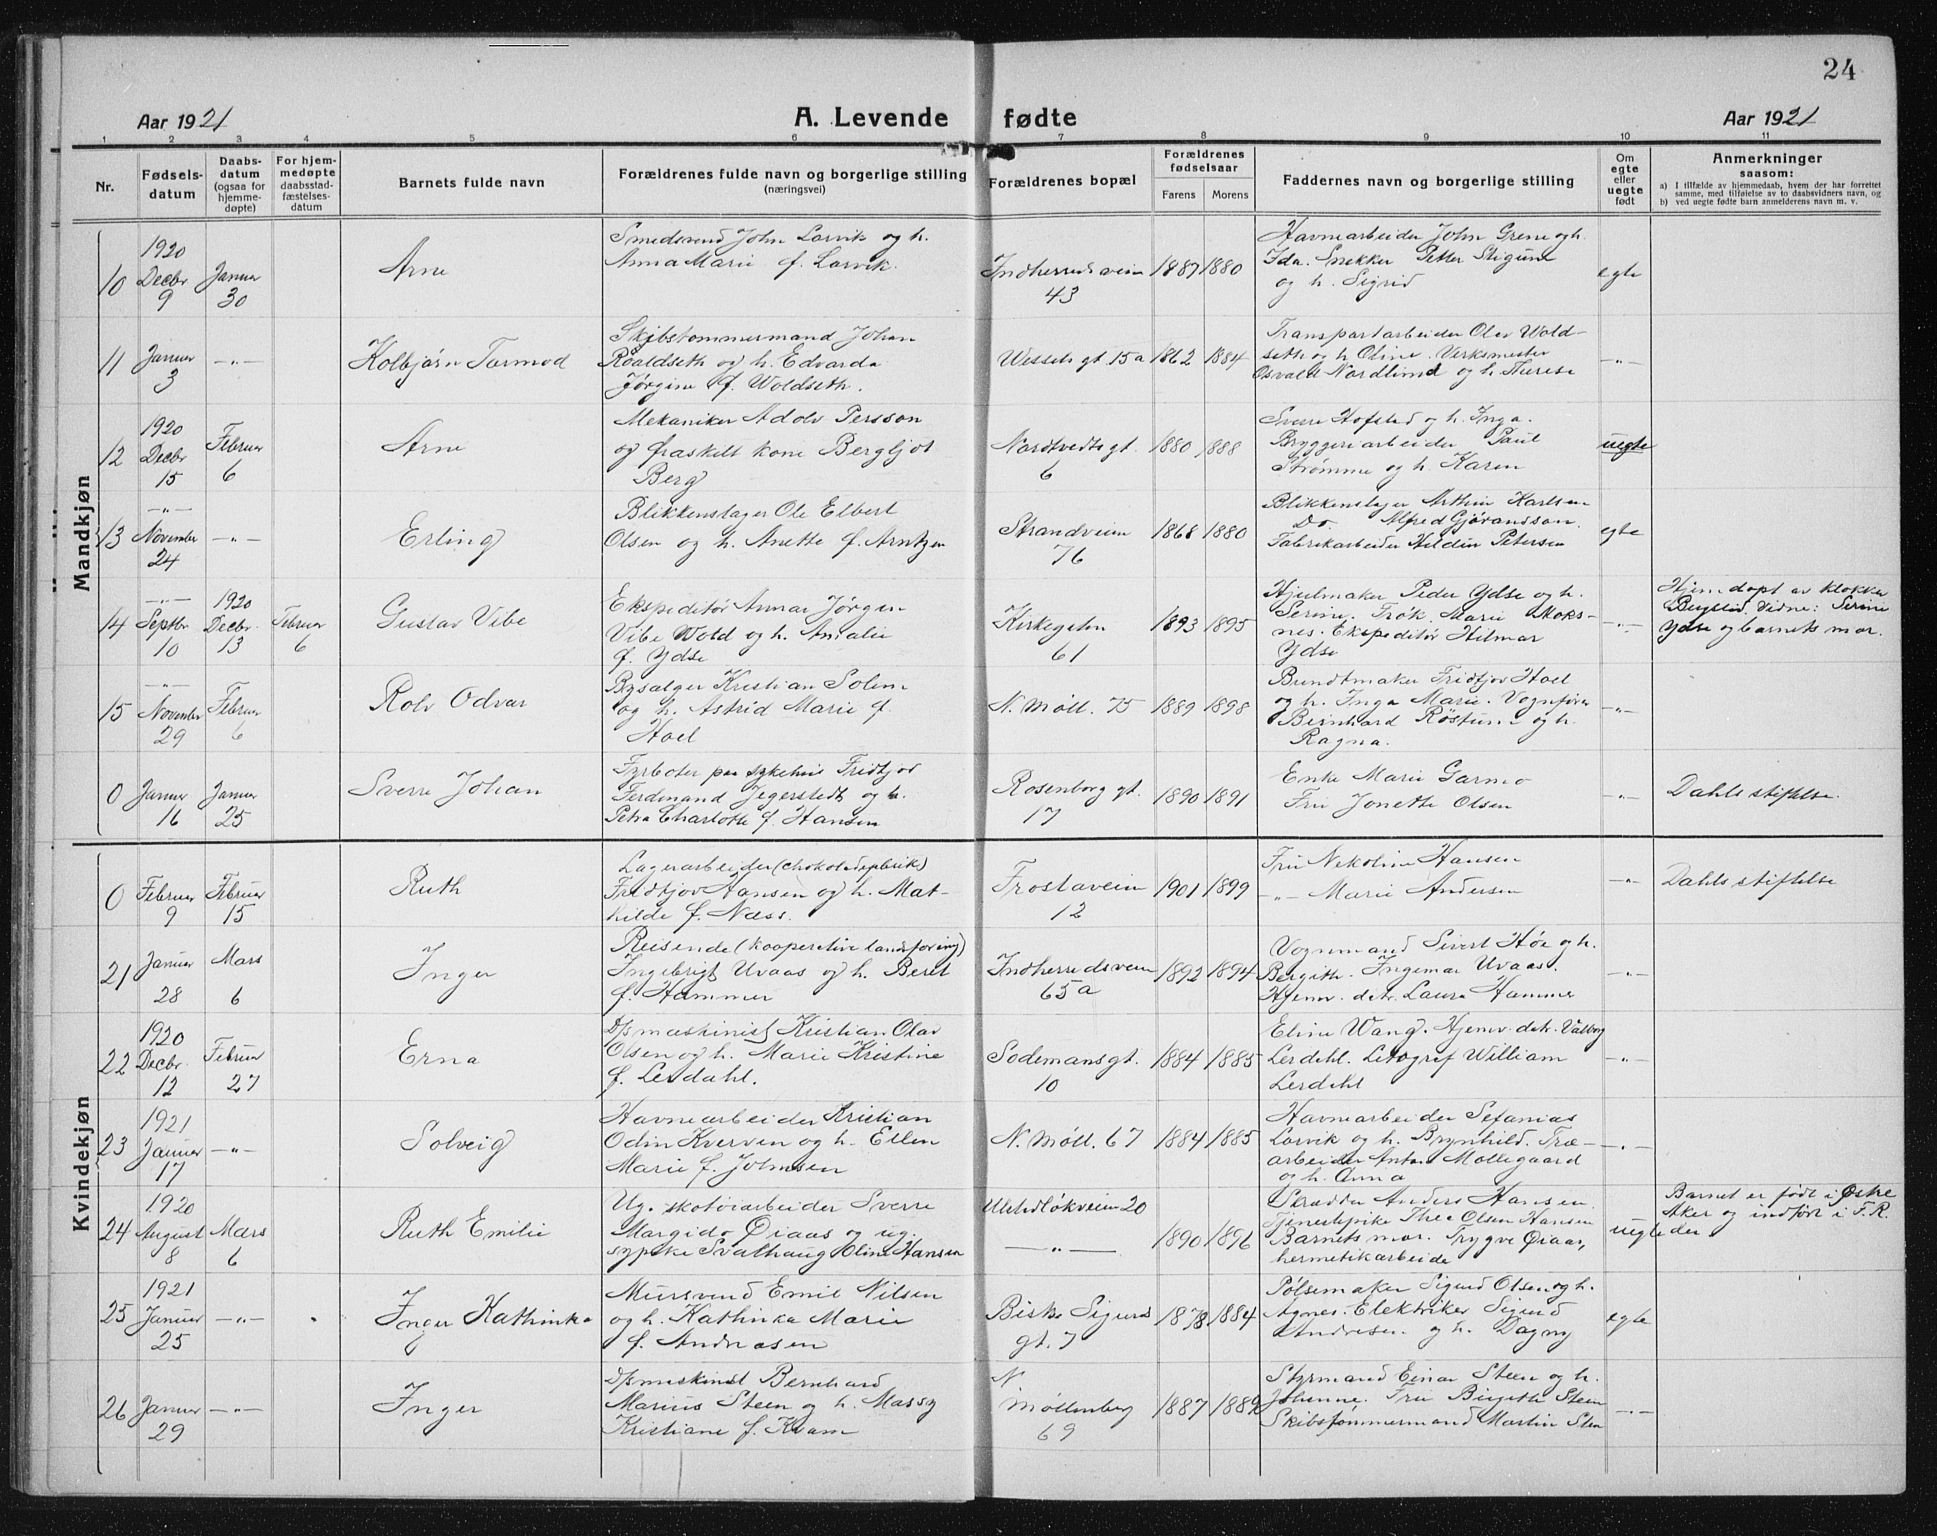 24
Aar 1921 A. Levende fødte Aar 1921
1 2 3 4 5 6 7 8 9 10 11
Nr.
Fødsels-
datum
Daabs-
datum
(ogsaa for
hjemme-
døpte)
For hjem-
medøpte
daabsstad-
fæstelses-
datum
Barnets fulde navn
Forældrenes fulde navn og borgerlige stilling
(næringsvei)
Forældrenes bopæl
Forældrenes
fødselsaar
Farens Morens
Faddernes navn og borgerlige stilling
Om
egte
eller
uegte
født
Anmerkninger
saasom:
a) I tilfælde av hjemmedaab, hvem der har forrettet
samme, med tilføielse av to daabsvidners navn, og
b) ved uegte fødte barn anmelderens navn m. v.
Mandkjøn
10
1920
Decbr
9
Januar
30
Arne
Smedsvend John Lorvik og h.
Anna Marie f. Lorvik.
Indherredsveien
43
1887 1880
Havnearbeider John Grene og h.
Ida. Snekker Petter Stigune
og h. Sigrid
egte
11
Januar
3
-"-
Kolbjørn Tormod
Skibstømmermand Johan
Roaldseth og h. Edvarda
Jørgine f. Woldseth.
Wessels gt. 15a
1862 1884
Transportarbeider Olav Wold-
seth og h. Oline. Verksmester
Osvald Nordlund og h. Therese
-"-
12
1920
Decbr
15
Februar
6
Arne
Mekaniker Adolv Persson
og fraskilt kone Bergljot
Berg
Nordtvedts gt.
6
1880 1888
Sverre Hofstad og h. Inga.
Bryggeriarbeider Paul
Strømme og h. Karen
uegte
13
-"-
November
24
-"-
Erling
Blikkenslager Ole Elbert
Olsen og h. Anette f. Arntzen
Strandveien
76
1868 1880
Blikkenslager Arthur Karlsen
Do. Alfred Gjøransson.
Fabrikarbeider Heldin Petersen
egte
14
-"-
Septbr.
10
1920
Decbr.
13
Februar
6
Gustav Vibe
Ekspeditør Annar Jørgen
Vibe Wold og h. Amalie
f. Ydse
Kirkegaten
61
1893 1895
Hjulmaker Peder Ydse og h.
Serine. Frøk. Marie Moks-
nes. Ekspeditør Hilmar
Ydse
-"-
Hjemdøpt av klokker
Bugsted. Vidne: Serine
Ydse og barnets mor.
15
-"-
November
29
Februar
6
Rolv Odvar
Bysælger Kristian Solem
og h. Astrid Marie f.
Hoel
N. Møll. 75
1889 1898
Bundtmaker Fridtjov Hoel
og h. Inga Marie. Vognfører
Bernhard Røstum og h.
Ragna.
-"-
0
Januar
16
Januar
25
Sverre Johan
Fyrbøter paa sykehus Fridtjov
Ferdinand Jegerstedt og h.
Petra Charlotte f. Hansen
Rosenborg gt.
17
1890 1891
Enke Marie Garmo
Fru Jonette Olsen
-"-
Dahls stiftelse.
Kvindekjøn
0
Februar
9
Februar
15
Ruth
Lagerarbeider (chokoladefabrik)
Fridtjov Hansen og h. Mat-
hilde f. Næss.
Frostaveien
12
1901 1899
Fru Nekoline Hansen
-"- Marie Andersen
-"-
Dahls stiftelse
21
Januar
28
Mars
6
Inger
Reisende (kooperative landsforening)
Ingebrigt Uvaas og h. Beret
f. Hammer
Indherredsveien
65a
1892 1894
Vognmand Sivert Høe og h.
Bergith. Ingemar Uvaas.
Hjemv. dtr. Laura Hammer
-"-
22
1920
Decbr.
12
Februar
27
Erna
D/s maskinist Kristian Olav
Olsen og h. Marie Kristine
f. Lerdahl.
Sodemansgt.
10
1884 1885
Eline Wang. Hjemv. dtr. Valborg
Lerdahl. Litograf William
Lerdahl
-"-
23
1921
Januar
17
-"-
Solveig
Havnearbeider Kristian
Odin Kverven og h. Ellen
Marie f. Johnsen
N. Møll. 67
1884 1885
Havnearbeider Sefanias
Lorvik og h. Brynhild. Træ-
arbeider Anton Møllegaard
og h. Anna
-"-
24
1920
August
8
Mars
6
Ruth Emilie
Ug. skotøiarbeider Sverre
Margido Øiaas og ug.
sypike Svalhaug Oline Hansen
Ulstadløkveien 20
-"-
1890 1896
Skrædder Anders Hansen.
Tjenestepike Thea Olsen Hansen
Barnets mor. Trygve Øiaas,
hermetikarbeider
uegte
Barnet er født i Østre
Aker og indført i F.R.
der
25
1921
Januar
25
-"-
Inger Kathinka
Mursvend Emil Nilsen
og h. Kathinka Marie
f. Andreasen
Bisk. Sigurds
gt. 7
1878 1884
Pølsemaker Sigurd Olsen og h.
Agnes. Elektriker Sigurd
Andresen og h. Dagny
egte
26
Januar
29
-"-
Inger
D/s maskinist Bernhard
Marius Steen og h. Massy
Kristiane f. Kvam
N
Møllenberg
69
1887 1889
Styrmand Einar Steen og h.
Johanne. Fru Birgitte Steen
Skibstømmermand Martin Steen
-"-